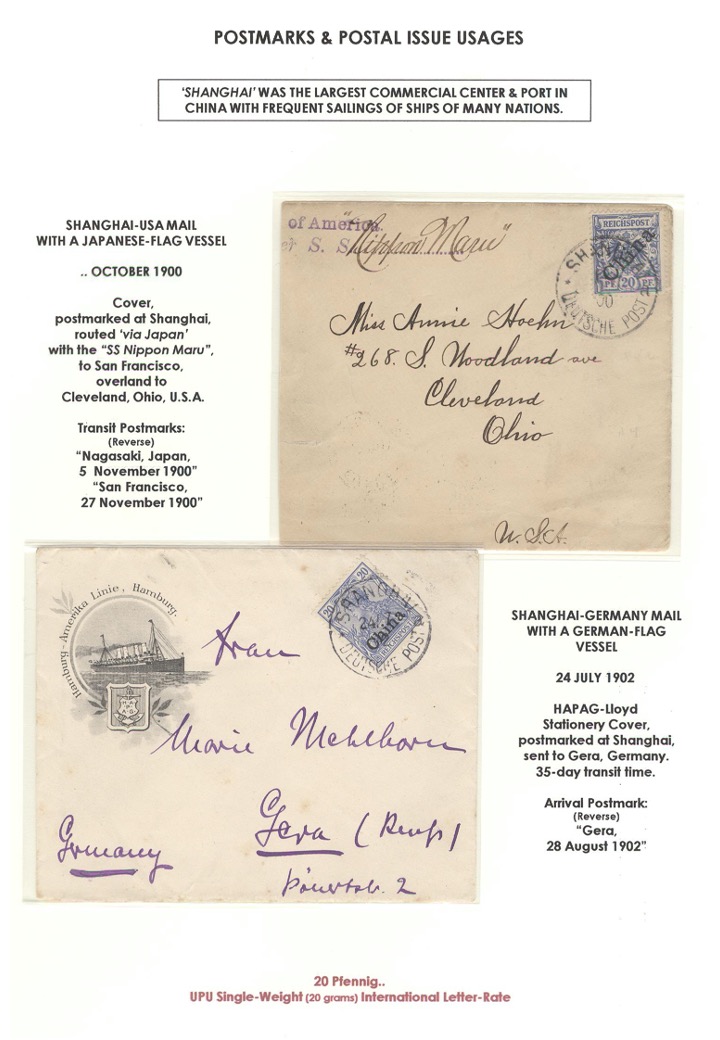 POSTMARKS & POSTAL ISSUE USAGES
'SHANGHAI' WAS THE LARGEST COMMERCIAL CENTER & PORT IN
CHINA WITH FREQUENT SAILINGS OF SHIPS OF MANY NATIONS.
SHANGHAI-USA MAIL
WITH A JAPANESE-FLAG VESSEL
.. OCTOBER 1900
Cover,
postmarked at Shanghai,
routed 'via Japan'
with the "SS Nippon Maru",
to San Francisco,
overland to
Cleveland, Ohio, U.S.A.
Transit Postmarks:
(Reverse)
"Nagasaki, Japan,
5 November 1900"
"San Francisco,
27 November 1900"
of America.
S. S. "Nippon Maru"
REICHSPOST
China
PF. 20 PF.
DEUTSCHE POST
Miss Annie Hoehn
#268. S. Woodland ave
Cleveland
Ohio
U.S.A.
Hamburg-Amerika Linie, Hamburg.
20 20
SHANGHAI
24
China
DEUTSCHE POST
Frau
Marie Mehlhorn
Gera (Reuß)
Germany
2
SHANGHAI-GERMANY MAIL
WITH A GERMAN-FLAG
VESSEL
24 JULY 1902
HAPAG-Lloyd
Stationery Cover,
postmarked at Shanghai,
sent to Gera, Germany.
35-day transit time.
Arrival Postmark:
(Reverse)
"Gera,
28 August 1902"
20 Pfennig..
UPU Single-Weight (20 grams) International Letter-Rate